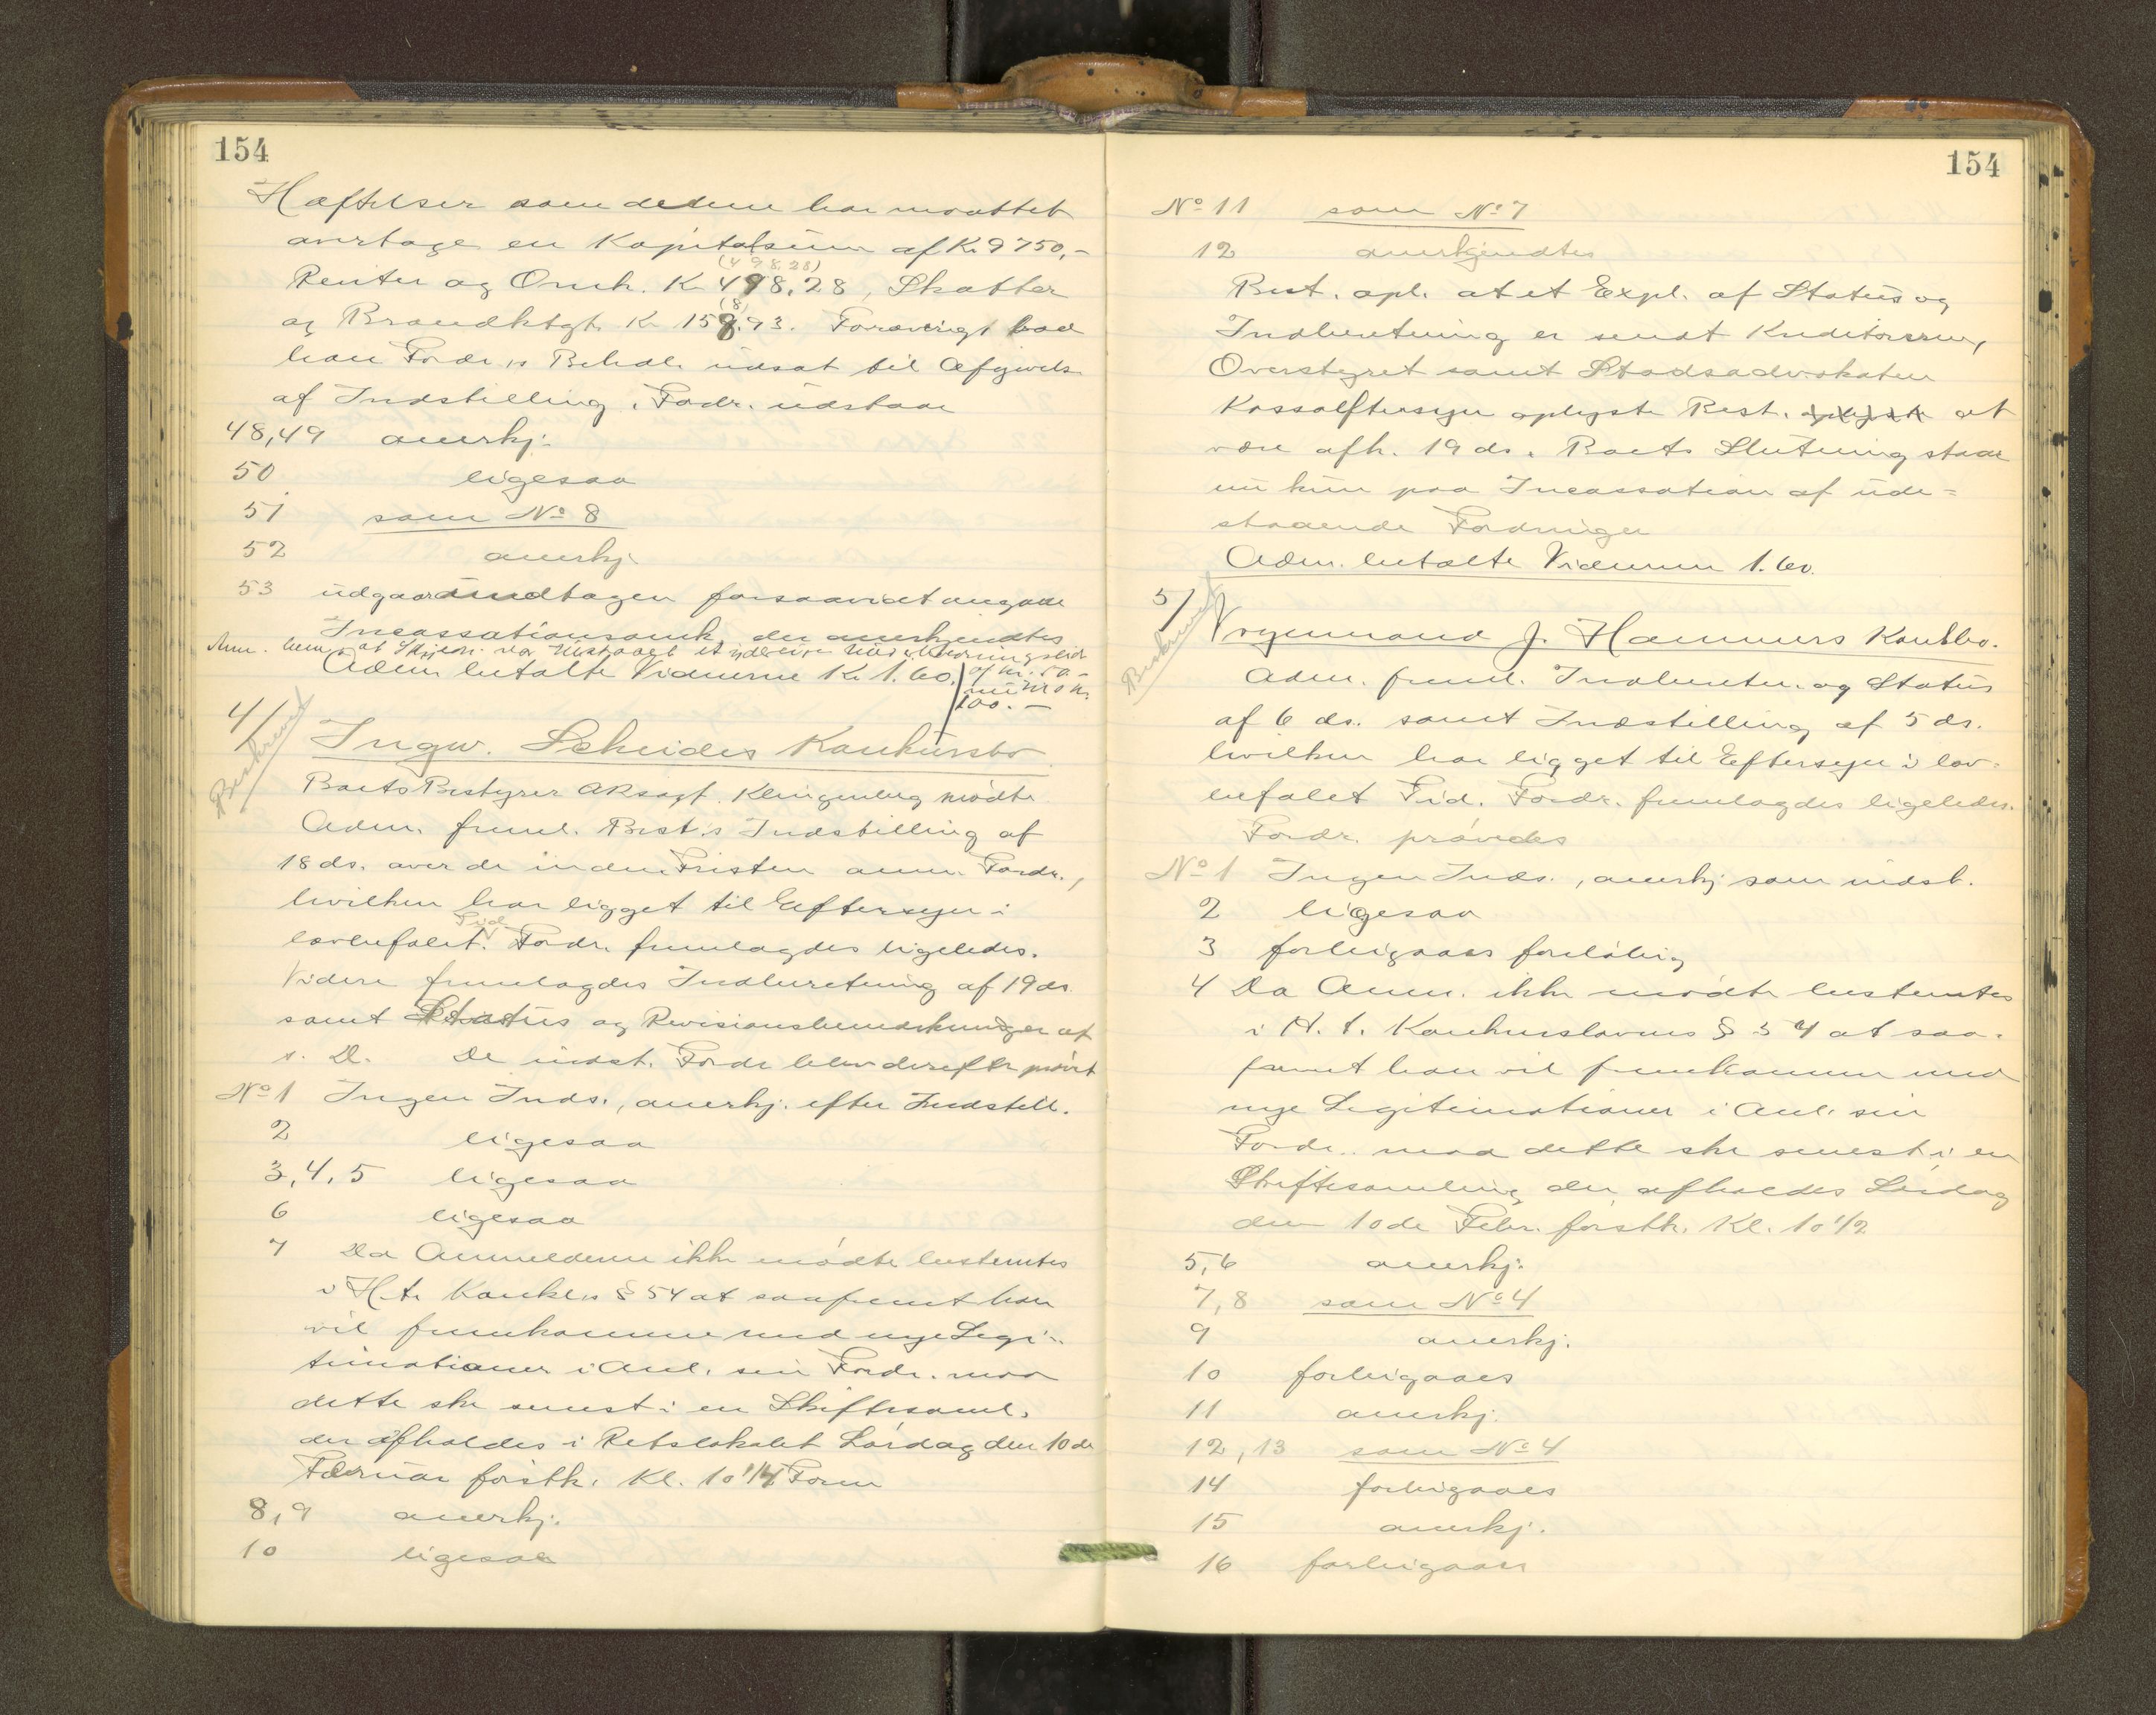 154
Hæftelser som denne har maattet
overtage en Kapitalsum af Kr. 9750,-
(498,28)
Renter og Omk. Kr 498,28, Skatter
(8)
og Brandktgt. Kr 158,93. Forøvrigt bad
han Fordr.s Behdl. udsat til Afgivels
af Indstilling. Fordr. udstaar
48,49 anerkj.
50 ligesaa
51 som No 8
52 anerkj.
53 udgaar undtagen forsaavidt angaar
Incassationsomk. der anerkjendtes
Anm. bem. at
Adm. betalte Vidnerne Kr 1.60.
af Kr. 50.-
100.-
4/ Ingw. Scheides Konkursbo
Beskrevet
Boets Bestyrer ORsagf. Klingenberg mødte
Adm. freml. Best.s Indstilling af
18 ds. over de inden Fristen anm. Fordr.,
hvilken har ligget til Eftersyn i
Tid
lovbefalet. Fordr. fremlagdes ligeledes.
Videre fremlagdes Indberetning af 19 ds.
samt Status og Revisionsbemærkninger af
s. D. De indst. Fordr blev derefter prøvet
No 1 Ingen Inds., anerkj. efter Indstill.
2 ligesaa
3,4,5 ligesaa
6 ligesaa
7 Da Anmelderen ikke mødte bestemtes
i H. t. Konkl.s § 54 at saafremt han
vil fremkomme med nye Legi-
timationer i Anl. sin Fordr. maa
dette ske senest i en Skiftesaml.
der afholdes i Retslokalet Lørdag den 10de
Februar førstk. Kl. 10 1/4 Form
8,9 anerkj.
10 ligesaa
154
No 11 som No 7
12 anerkjendtes
Best. opl. at et Expl. af Status og
Indberetning er sendt Kreditorerne,
Overstyret samt Stadsadvokaten
Kassaeftersyn oplyste Best. oplyste at
være afh. 19 ds. Boets Slutning staar
nu kun paa Incassation af ude-
staaende Fordringer
Adm. betalte Vidnerne 1.60.
5/ Vognmand J. Hammers Konkbo.
Beskrevet
Adm. freml. Indberetn. og Status
af 6 ds. samt Indstilling af 5 ds.
hvilken har ligget til Eftersyn i lov-
befalet Tid. Fordr. fremlagdes ligeledes.
Fordr. prøvedes
No 1 Ingen Inds., anerkj som indst.
2 ligesaa
3 forbigaaes foreløbig
4 Da Anm. ikke mødte bestemtes
i H. t. Konkurslovens § 54 at saa-
fremt han vil fremkomme med
nye Legitimationer i Anl. sin
Fordr. maa dette ske senest i en
Skiftesamling der afholdes Lørdag
den 10de Febr. førstk. Kl. 10 1/2
5,6 anerkj.
7,8 som No 4
9 anerkj.
10 forbigaaes
11 anerkj.
12,13 som No 4
14 forbigaaes
15 anerkj.
16 forbigaaes